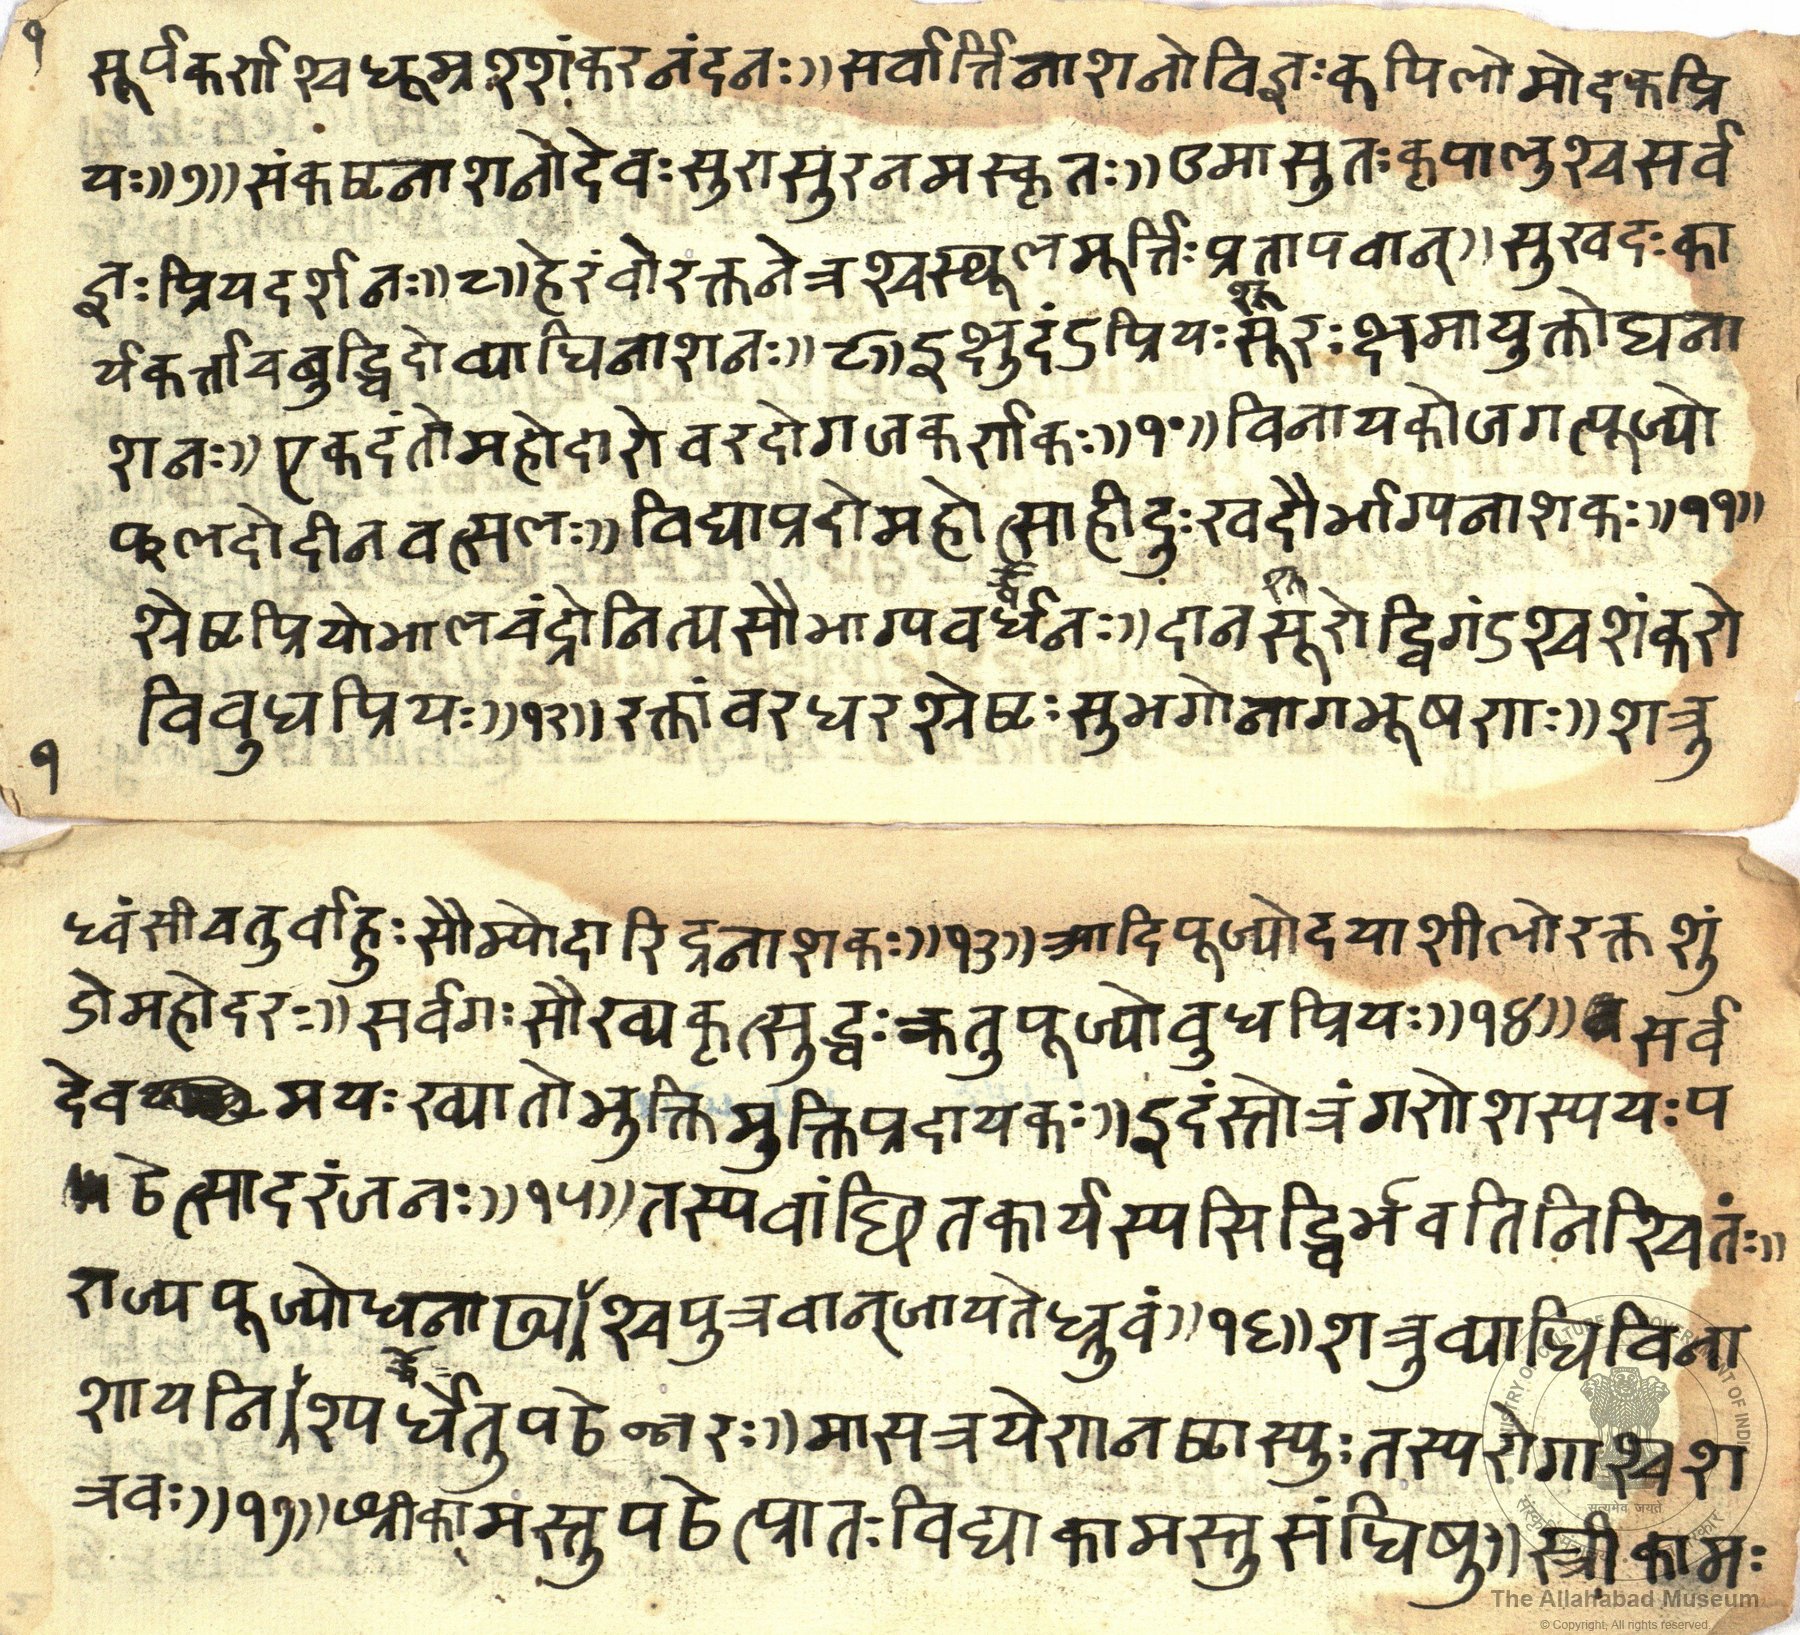 १
सूर्पकर्णश्चधूम्रश्शंकरनंदनः॥सर्वार्त्तिनाशनोविज्ञःकपिलोमोदकप्रि
यः॥७॥संकष्टनाशनोदेवःसुरासुरनमस्कृतः॥उमासुतःकृपालुश्चसर्व
ज्ञःप्रियदर्शनः॥८॥हेरंवोरक्तनेत्रश्चस्थूलमूर्त्तिःप्रतापवान्॥सुखदःका
र्यकर्त्ताचबुद्धिदोव्याधिनाशनः॥९॥इक्षुदंडप्रियःसूरःक्षमायुक्तोघना
शनः॥एकदंतोमहोदारोवरदोगजकर्णकः॥१०॥विनायकोजगत्पूज्यो
फलदोदीनवत्सलः॥विद्याप्रदोमहोत्साहीदुःखदौर्भाग्यनाशकः॥११॥
श्रेष्टप्रियोभालचंद्रोनित्यसौभाग्यवर्धनः॥दानसूरोद्विगंडश्चशंकरो
विवुधप्रियः॥१२॥रक्तांवरधरश्रेष्टःसुभगोनागभूषणः॥शत्रु
१
ध्वंसीचतुर्वाहुःसौम्योदारिद्रनाशकः॥१३॥आदिपूज्योदयाशीलोरक्तशुं
डोमहोदरः॥सर्वगःसौख्यकृत्सुद्धःक्रतुपूज्योवुधप्रियः॥१४॥सर्व
देवमयःख्यातोभुक्तिमुक्तिप्रदायकः॥इदंस्तोत्रंगणेशस्ययःप
ठेत्सादरंजनः॥१५॥तस्यवांछितकार्यस्यसिद्धिर्भवतिनिश्चितंः॥
राज्यपूज्योधनाढ्यश्चपुत्रवान्जायतेध्रुवं॥१६॥शत्रुव्याधिविना
शायनिश्यर्धेतुपठेन्नरः॥मासत्रयेणनष्टास्युःतस्यरोगाश्चश
त्रवः॥१७॥श्रीकामस्तुपठेत्प्रातःविद्याकामस्तुसंधिषु॥स्त्रीकामः
The Allahabad Museum
© Copyright, All rights reserved.